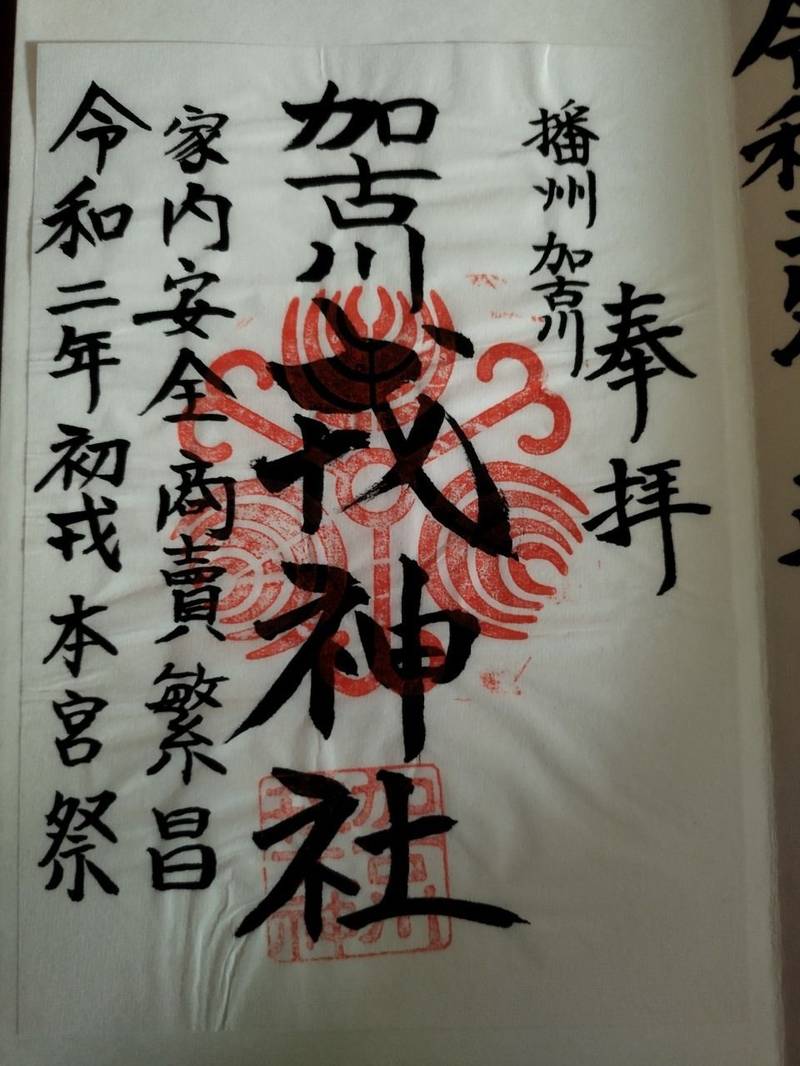 奉拝
播州加古川
加古川戎神社
家内安全商賣繁昌
令和二年初戎本宮祭
令和二年